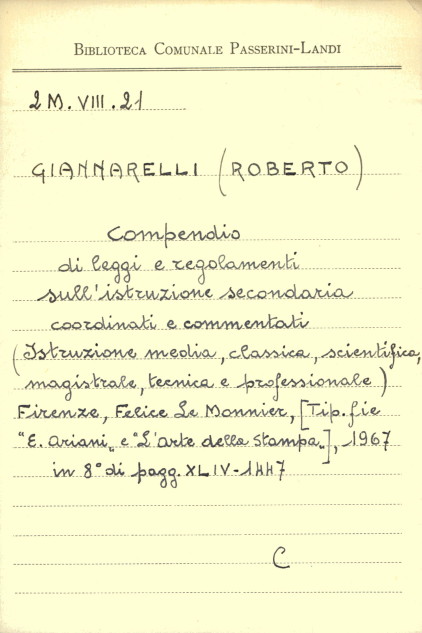 BIBLIOTECA COMUNALE PASSERINI-LANDI
2 M. VIII. 21
GIANNARELLI (ROBERTO)
Compendio
di leggi e regolamenti
sull'istruzione secondaria
coordinati e commentati
(Istruzione media, classica, scientifica,
magistrale, tecnica e professionale)
Firenze, Felice Le Monnier, [Tip. fie
"E. Ariani„ e "L'Arte della Stampa„], 1967
in 8° di pagg. XLIV-1447
C